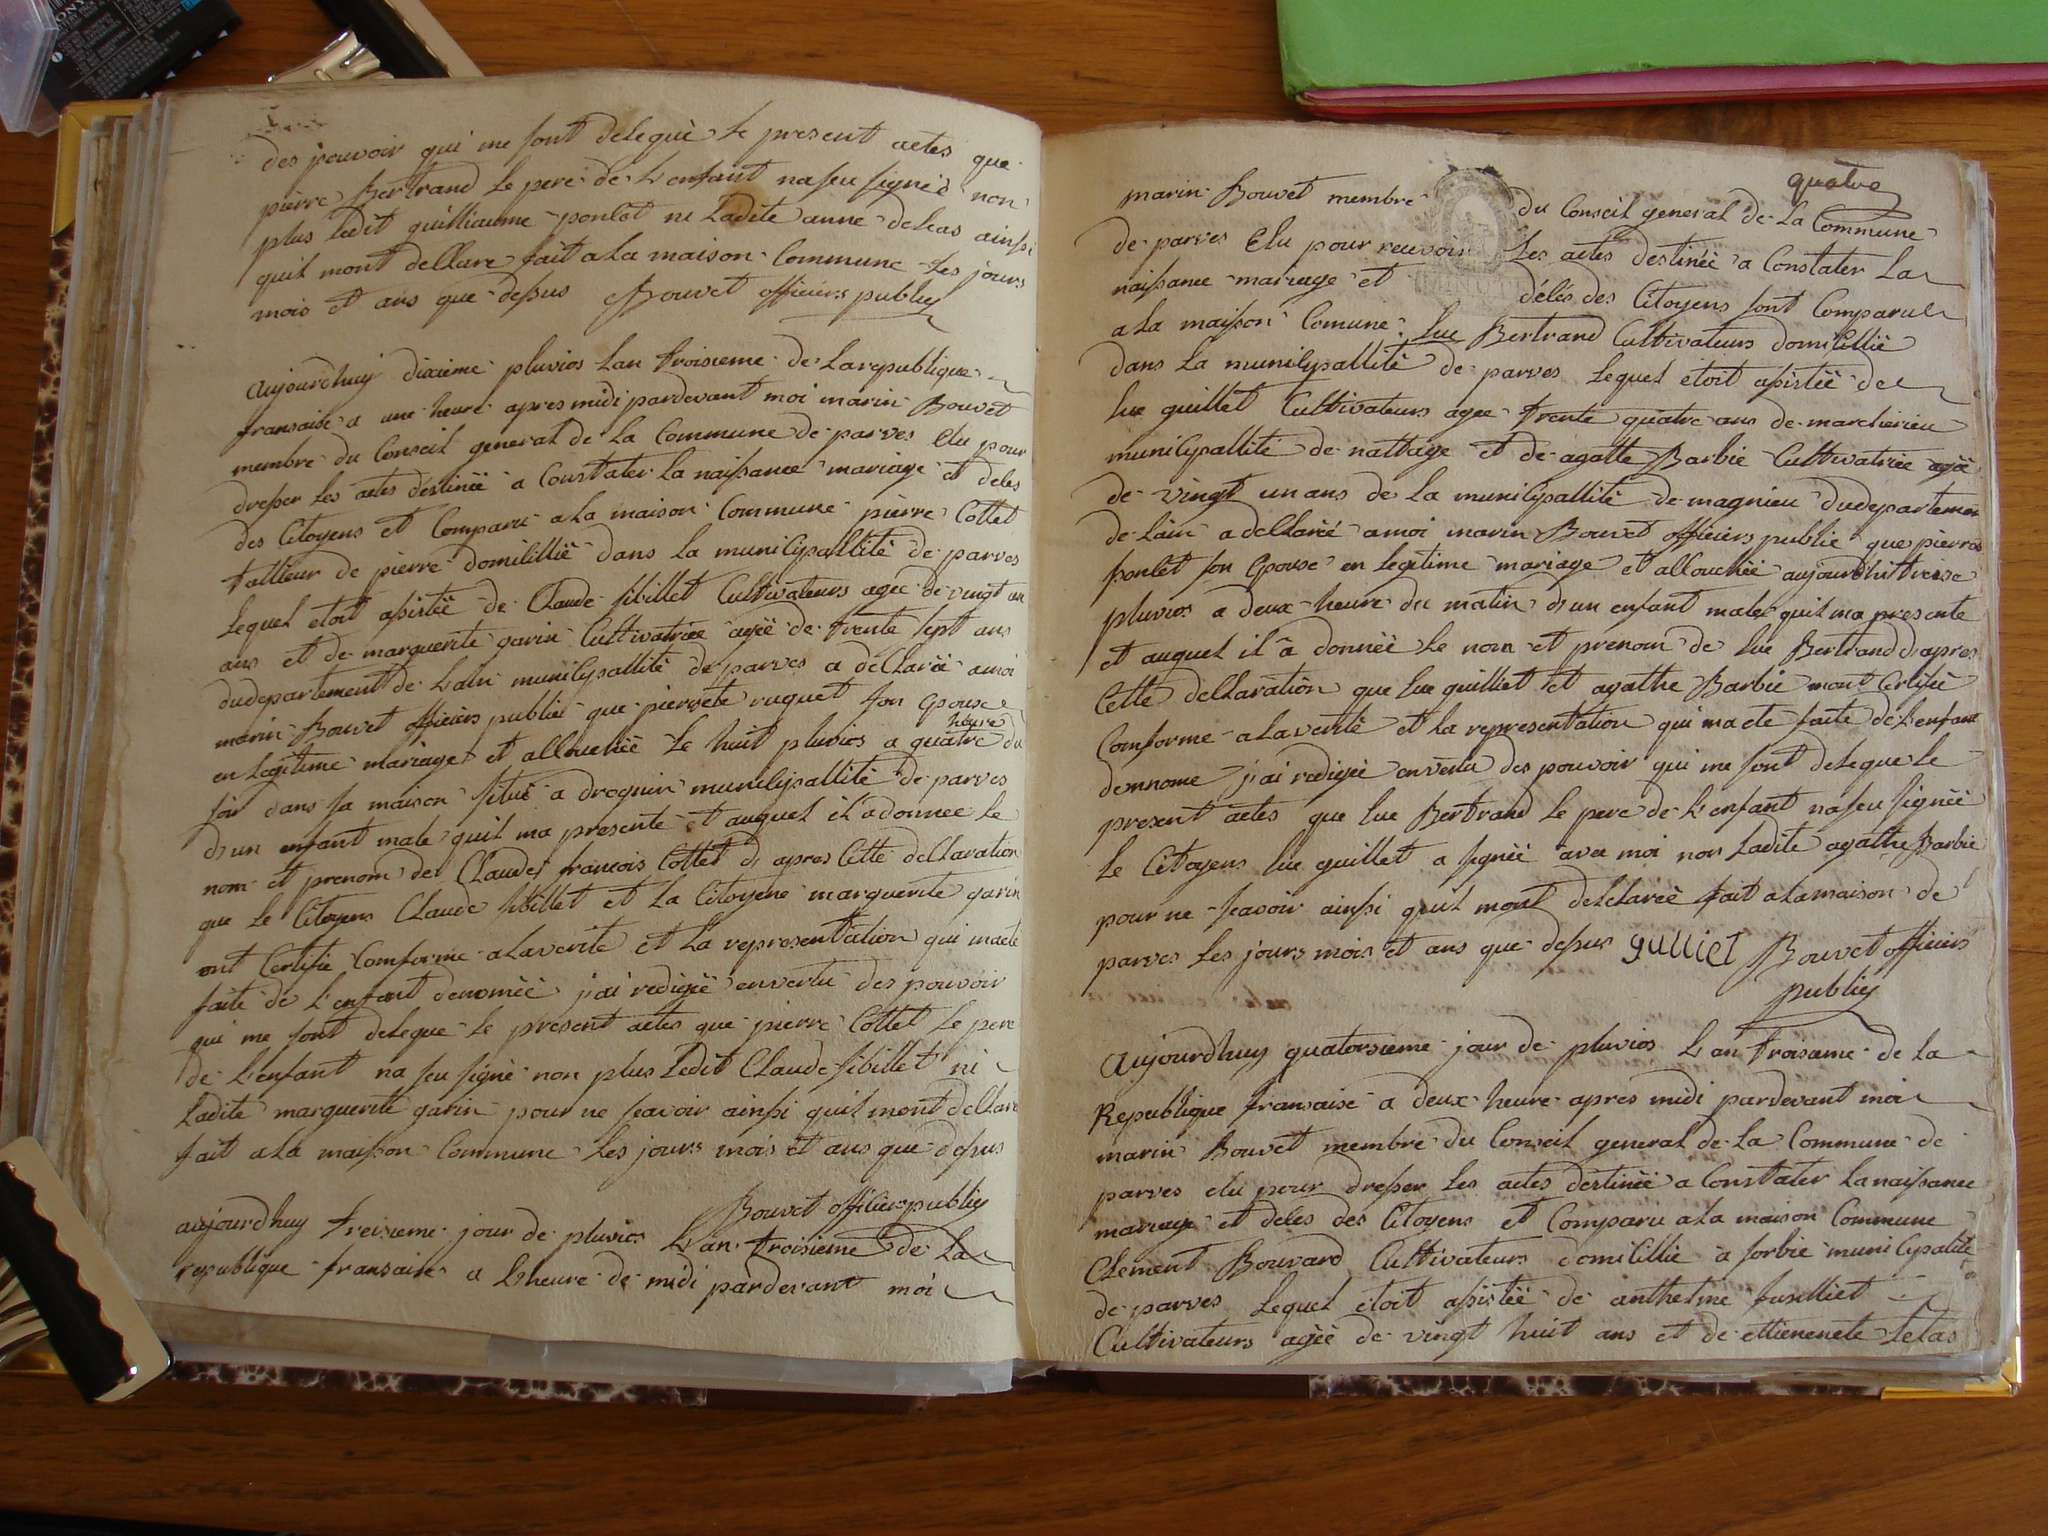 des pouvoir qui me sont delegué le present actes que
pierre Bertrand le pere de L'enfant na seu signée non
plus ledit guilliaume ponlet ni Ladite anne deleas ainsi
quil mont dellare fait a La maison Commune les jours
mois et ans que dessus Bouvet officiers publiq
aujourdhuy dixieme pluvios Lan troisieme de La republique
fransaise a une heure apres midi pardevant moi marin Bouvet
membre du Conseil general de La Commune de parves Elu pour
dresser Les actes destinéé a Constater La naissance mariage et deles
des Citoyens et Comparu a La maison Commune pierre Cottet
tallieur de pierre domicillié dans La municipallité de parves
Lequel etoit assistéé de Claude sibillet Cultivateurs agée de vingt un
ans et de marguerite garin Cultivatrice agéé de trente sept ans
du departement de Lain municipallité de parves a déllaréé a moi
marin Bouvet officiers publié que pierrete ruquet son Epouse
en Legitime mariage et allouchéé Le huit pluvios a quatre heure du
soir dans sa maison situé a droguin municipallité de parves
d'un enfant male quil ma presente et auquel il a donnee Le
nom et prenom de Claude francois Cottet d'apres Cette dellaration
que Le Citoyens Claude sibillet et La Citoyene marguerite garin
ont Certifie Conforme a La verite et La representation qui ma ete
faite de L'enfant denoméé j'ai redigéé en vertu des pouvoir
qui me sont delegue Le present actes que pierre Cottet Le pere
de L'enfant na seu signe non plus Ledit Claude sibillet ni
Ladite marguerite garin pour ne scavoir ainsi quil mont dellare
fait a La maison Commune Les jours mois et ans que dessus
Bouvet officier publiq
aujourdhuy treisieme jour de pluvios L'an troisieme de La
republique fransaise a Lheure de midi pardevant moi
quatre
marin Bouvet membre du Conseil general de La Commune
de parves Elu pour recevoir Les actes destinéé a Constater La
naissance mariage et délés des Citoyens sont Comparu
MINUT
a La maison Comune Luc Bertrand Cultivateurs domicillié
dans La municipallité de parves Lequel etoit assistéé de
Luc guillet Cultivateurs agee trente quatre ans de marchierieu
municipallité de nattage et de agatte Barbie Cultivatrice agéé
de vingt un ans de La municipallité de magnieu du departement
de Lain a dellaréé a moi marin Bouvet officiers publié que pierre
ponlet son Epouse en Legitime mariage et allouchéé aujourdhui treise
pluvios a deux heure du matin d'un enfant male quil ma presente
et auquel il a donnéé Le nom et prenom de Luc Bertrand d'apres
Cette dellaration que Luc guilliet et agathe Barbie mont Certifiéé
Conforme a La verité et La representation qui ma ete faite de L'enfant
dennome j'ai redigéé en vertu des pouvoir qui me sont delegue Le
present actes que Luc Bertrand Le pere de L'enfant na seu signéé
Le Citoyens Luc guillet a signéé avec moi non Ladite agathe Barbie
pour ne scavoir ainsi quil mont dellaréé fait a La maison de
parves Les jours mois et ans que dessus gulliet Bouvet officiers
publiq
aujourdhuy quatorsieme jour de pluvios L'an troisieme de La
Republique fransaise a deux heure apres midi pardevant moi
marin Bouvet membre du Conseil general de La Commune de
parves elu pour dresser Les actes destinéé a Constater La naissance
mariage et deles des Citoyens et Comparu a La maison Commune
Clement Bouvard Cultivateurs domicillié a sorbie municipalité
de parves Lequel etoit assistéé de anthelme fusilliet
Cultivateurs agéé de vingt huit ans et de ettienenete